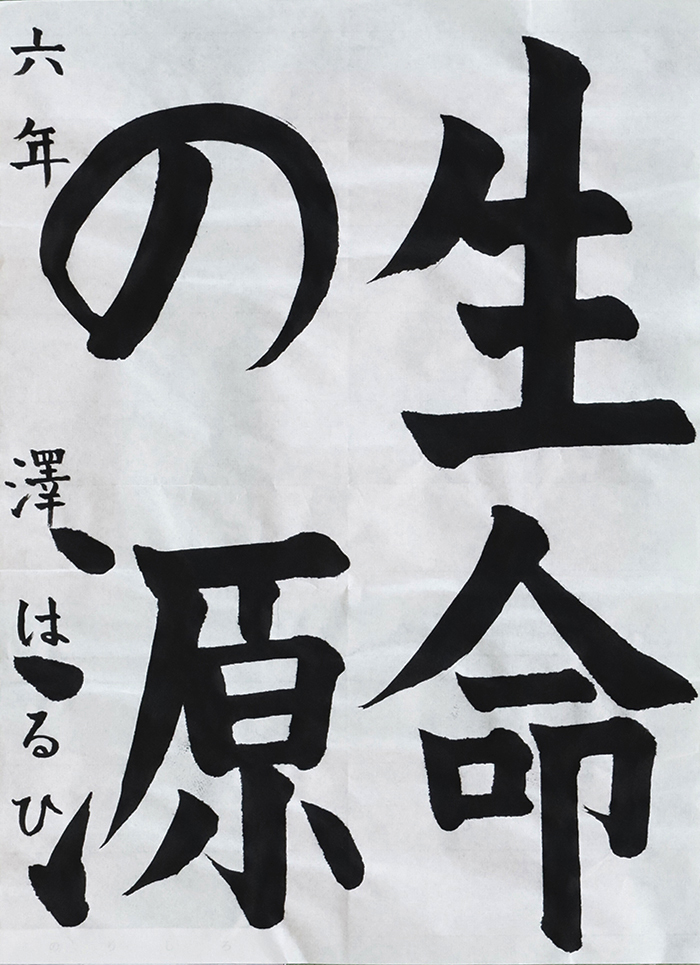 生命
の源
六年 澤 はるひ